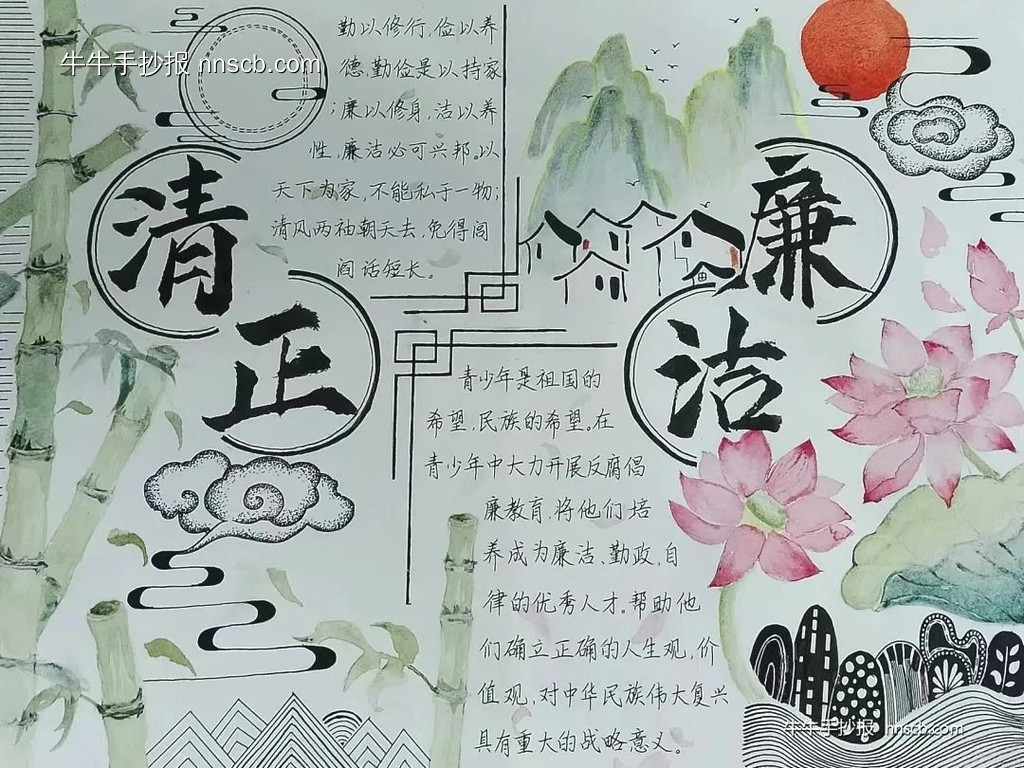 牛牛手抄报 nnscb.com
勤以修行,俭以养
德.勤俭是以持家
;廉以修身,洁以养
性,廉洁必可兴邦。以
天下为家,不能私于一物;
清风两袖朝天去,免得闾
阎话短长。
清
正
廉
洁
青少年是祖国的
希望,民族的希望。在
青少年中大力开展反腐倡
廉教育,将他们培
养成为廉洁、勤政,自
律的优秀人才。帮助他
们确立正确的人生观,价
值观,对中华民族伟大复兴
具有重大的战略意义。
牛牛手抄报 nnscb.com